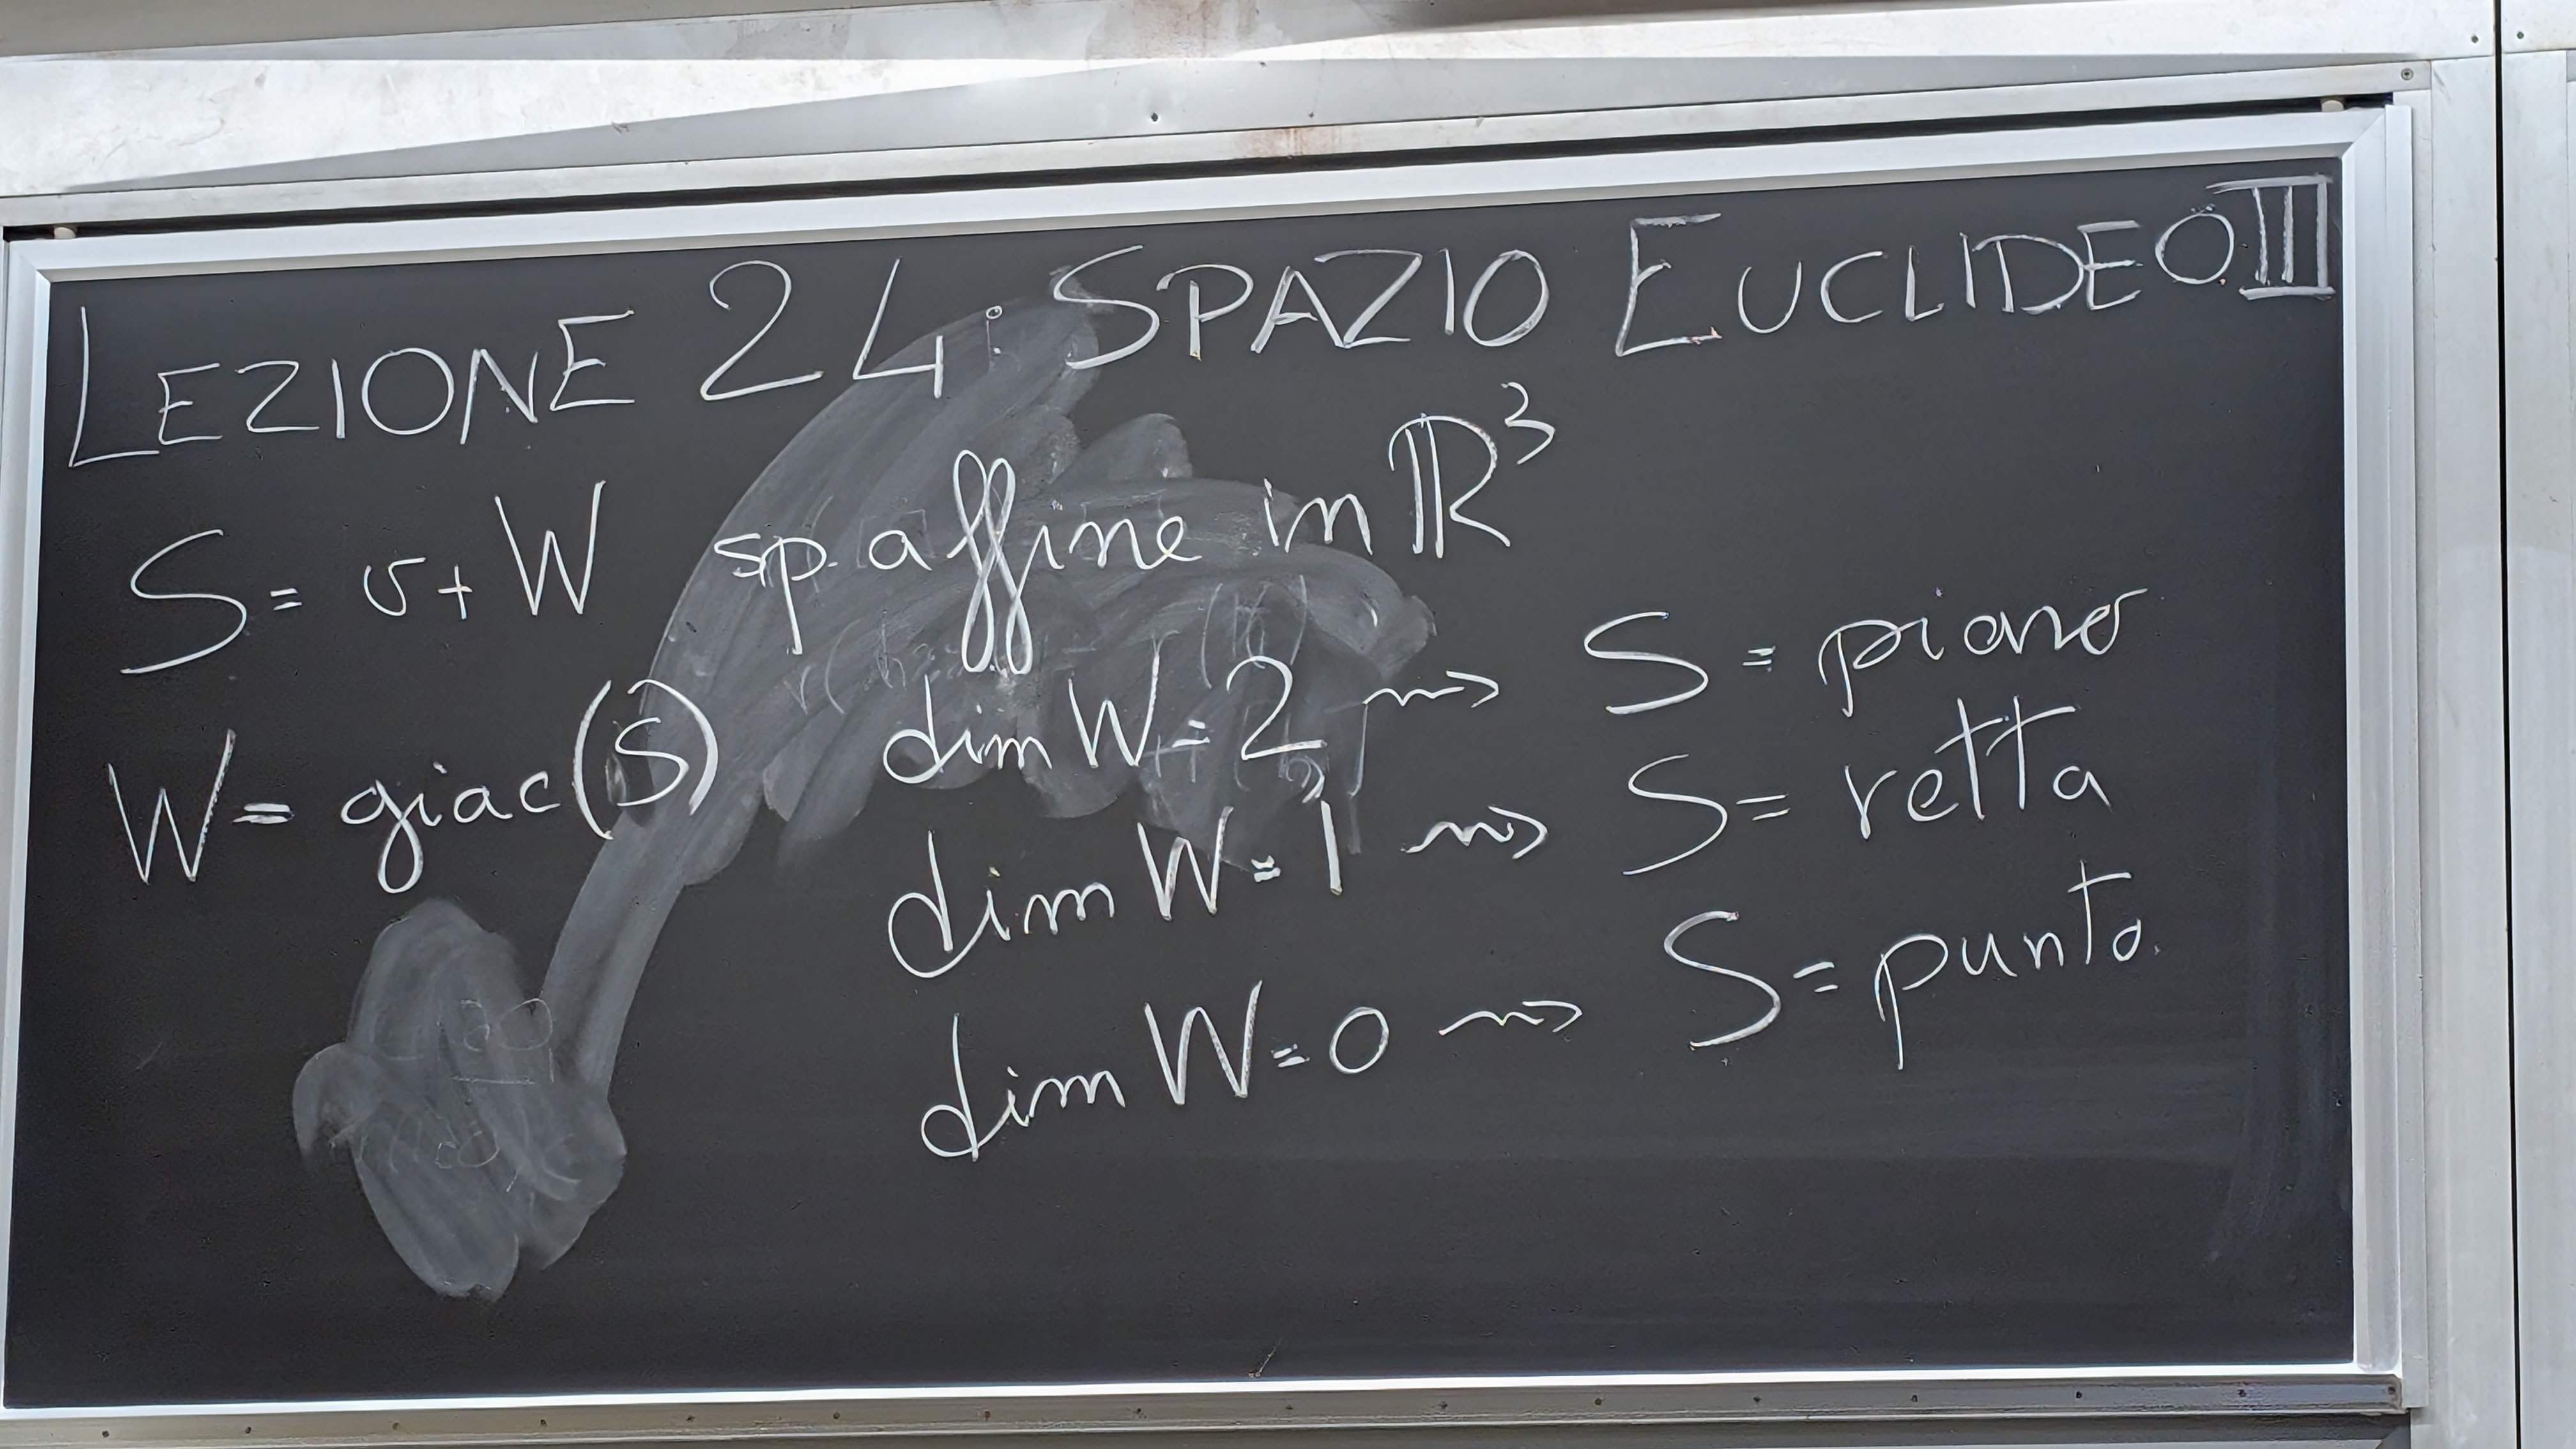 LEZIONE 24: SPAZIO EUCLIDEO III
S = v + W sp. affine in ℝ³
W = giac(S) dim W = 2 ⇝ S = piano
dim W = 1 ⇝ S = retta
dim W = 0 ⇝ S = punto.